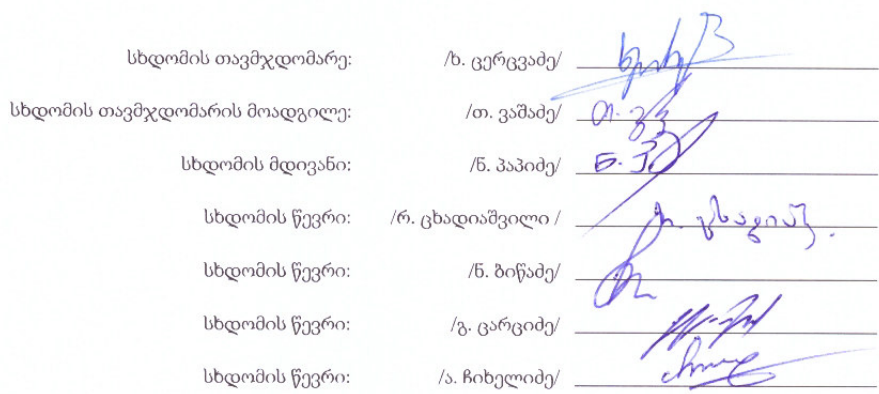 სხდომის თავმჯდომარე: /ხ. ცერცვაძე/
სხდომის თავმჯდომარის მოადგილე: /თ. ვაშაძე/
სხდომის მდივანი: /ნ. პაპიძე/
სხდომის წევრი: /რ. ცხადიაშვილი /
სხდომის წევრი: /ნ.ბიწაძე/
სხდომის წევრი: /გ. ცარციძე/
სხდომის წევრი: /ა. ჩიხელიძე/